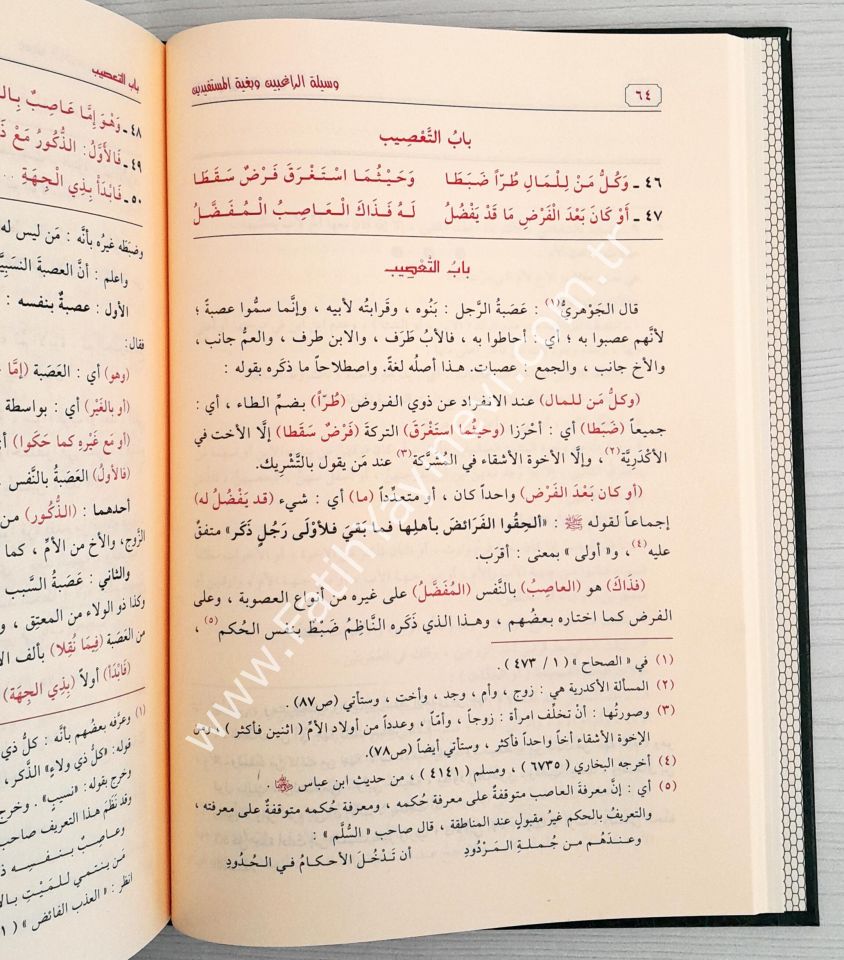 ٦٤
وسيلة الراغبين وبغية المستفيدين
بابُ التَّعْصِيب
٤٦ ـ وَكُلُّ مَنْ لِلْمَالِ طُرّاً ضَبَطَا وَحَيْثُمَا اسْتَغْرَقَ فَرْضٌ سَقَطَا
٤٧ ـ أَوْ كَانَ بَعْدَ الْفَرْضِ مَا قَدْ يَفْضُلُ لَهُ فَذَاكَ الْعَاصِبُ الْمُفَضَّلُ
بابُ التَّعْصِيب
قال الجَوْهريُّ(١) : عَصَبَةُ الرَّجل : بَنُوه ، وقَرابتُه لأبيه ، وإنَّما سمُّوا عصبةً ؛
لأنَّهم عصبوا به ؛ أي : أحاطوا به ، فالأبُ طَرَف ، والابن طرف ، والعمُّ جانب ،
والأخ جانب ، والجمع : عصبات. هذا أصلُه لغةً. واصطلاحاً ما ذكَره بقوله :
(وكلُّ مَن للمال) عند الانفراد عن ذوي الفروض (طُرّاً) بضمِّ الطاء ، أي :
جميعاً (ضَبَطَا) أي : أحْرَزا (وحيثُما استَغْرَق) التركةَ (فَرْضٌ سَقطا) إلَّا الأخت في
الأكْدَريَّة(٢)، وإلَّا الأخوة الأشقاء في المُشْرَّكة(٣) عند مَن يقول بالتَّشْريك.
(أو كان بَعْدَ الفَرْض) واحداً كان ، أو متعدِّداً (ما) أي : شيء (قد يَفْضُلُ له)
إجماعاً لقوله ﷺ : «ألحِقُوا الفَرَائضَ بأهلِها فما بقيَ فلأَوْلَى رَجُلٍ ذَكَر» متفقٌ
عليه(٤)، و« أولى » بمعنى : أقرَب.
(فذَاكَ) هو (العاصِبُ) بالنَّفس (المُفَضَّلُ) على غيره من أنواع العصوبة ، وعلى
الفرض كما اختاره بعضُهم ، وهذا الذي ذكَره النَّاظِمُ ضَبْطٌ بنفس الحُكم(٥) ،
(١) في « الصحاح » ( ١ / ٤٧٣ ) .
(٢) المسألة الأكدرية هي : زوج ، وأم ، وجد ، وأخت ، وستأتي (ص٨٧).
(٣) وصورتُها : أنْ تخلِّف امرأة : زوجاً ، وأمّاً ، وعدداً من أولاد الأمِّ ( اثنين فأكثر ) ومن
الإخوة الأشقاء أخاً واحداً فأكثر ، وستأتي أيضاً (ص٧٨).
(٤) أخرجه البخاري ( ٦٧٣٥ ) ، ومسلم ( ٤١٤١ ) ، من حديث ابن عباس .
(٥) أي : إنَّ معرفةَ العاصب متوقفةٌ على معرفة حُكمه ، ومعرفةُ حُكمه متوقفةٌ على معرفته ،
والتعريفُ بالحكم غيرُ مقبولٍ عند المناطقة ، قال صاحب « السُّلَّم » :
وعندَهُم من جُملةِ المَرْدُودِ أن تَدْخُلَ الأحكامُ في الحُدُودِ
باب التعصيب
٤٨ ـ وَهْوَ إِمَّا عَاصِبٌ
٤٩ ـ فَالأَوَّلُ: الذُّكُورُ مَعْ
٥٠ ـ فَابْدَأْ بِذِي الْجِهَةِ ...
وضبَطه غيرُه بأنَّه : مَن ليس له
واعلم : أنَّ العصبة
الأول : عصبةٌ بنفسه :
فقال:
(وهو) أي : العَصَبة (إمَّا
(أو بالغَيْر) أي : بواسطة
(أو مَع غَيْرِه كما حَكَوا)
(فالأولُ) العَصَبةُ بالنَّفس
أحدهما : (الذُّكُور) من
الزَّوج، والأخ من الأمِّ ، كما
والثاني : عَصَبةُ السَّبب
وكذا ذو الولاء من المعتِق ،
من العَصَبة (فِيمَا نُقِلا) بألف
(فَابْدَأ) أولاً (بِذِي الجِهَة)
(١) وعرَّفه بعضُهم بأنَّه : كلُّ ذي
قوله: «كلُّ ذي ولاءٍ» الذَّكر،
وخرج بقوله: «نسيبٍ» . وخرج
وقد نَظَم هذا التعريف صاحب
وعاصِبٌ بنفسِه
مَن ينتمي للمَيْتِ
انظر : « العذب الفائض » (
www.FatihYayinevi.com.tr